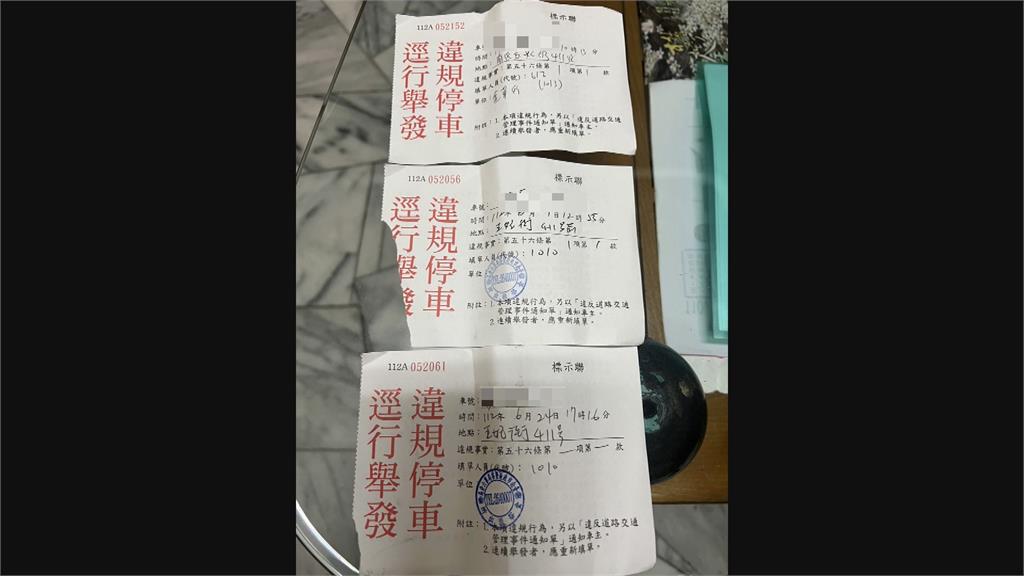 112A 052152
標示聯
違規停車
逕行舉發
車
時間：
10時13分
地點：
411號
違規事實：第五十六條第1項第1款
填單人員(代號)：612
(1013)
單位：
附註：1.本項違規行為，另以「違反道路交通
管理事件通知單」通知車主。
2.連續舉發者，應重新填單。
112A 052056
標示聯
違規停車
逕行舉發
車號：
時間：112年 月1日12時58分
地點：411號前
違規事實：第五十六條第1項第1款
填單人員(代號)：1010
單位
附註：1.本項違規行為，另以「違反道路交通
管理事件通知單」通知車主。
2.連續舉發者，應重新填單。
112A 052061
標示聯
違規停車
逕行舉發
車號：
時間：112年6月24日17時16分
地點：411號
違規事實：第五十六條第一項第一款
填單人員(代號)：1010
單位
附註：1.本項違規行為，另以「違反道路交通
管理事件通知單」通知車主。
2.連續舉發者，應重新填單。